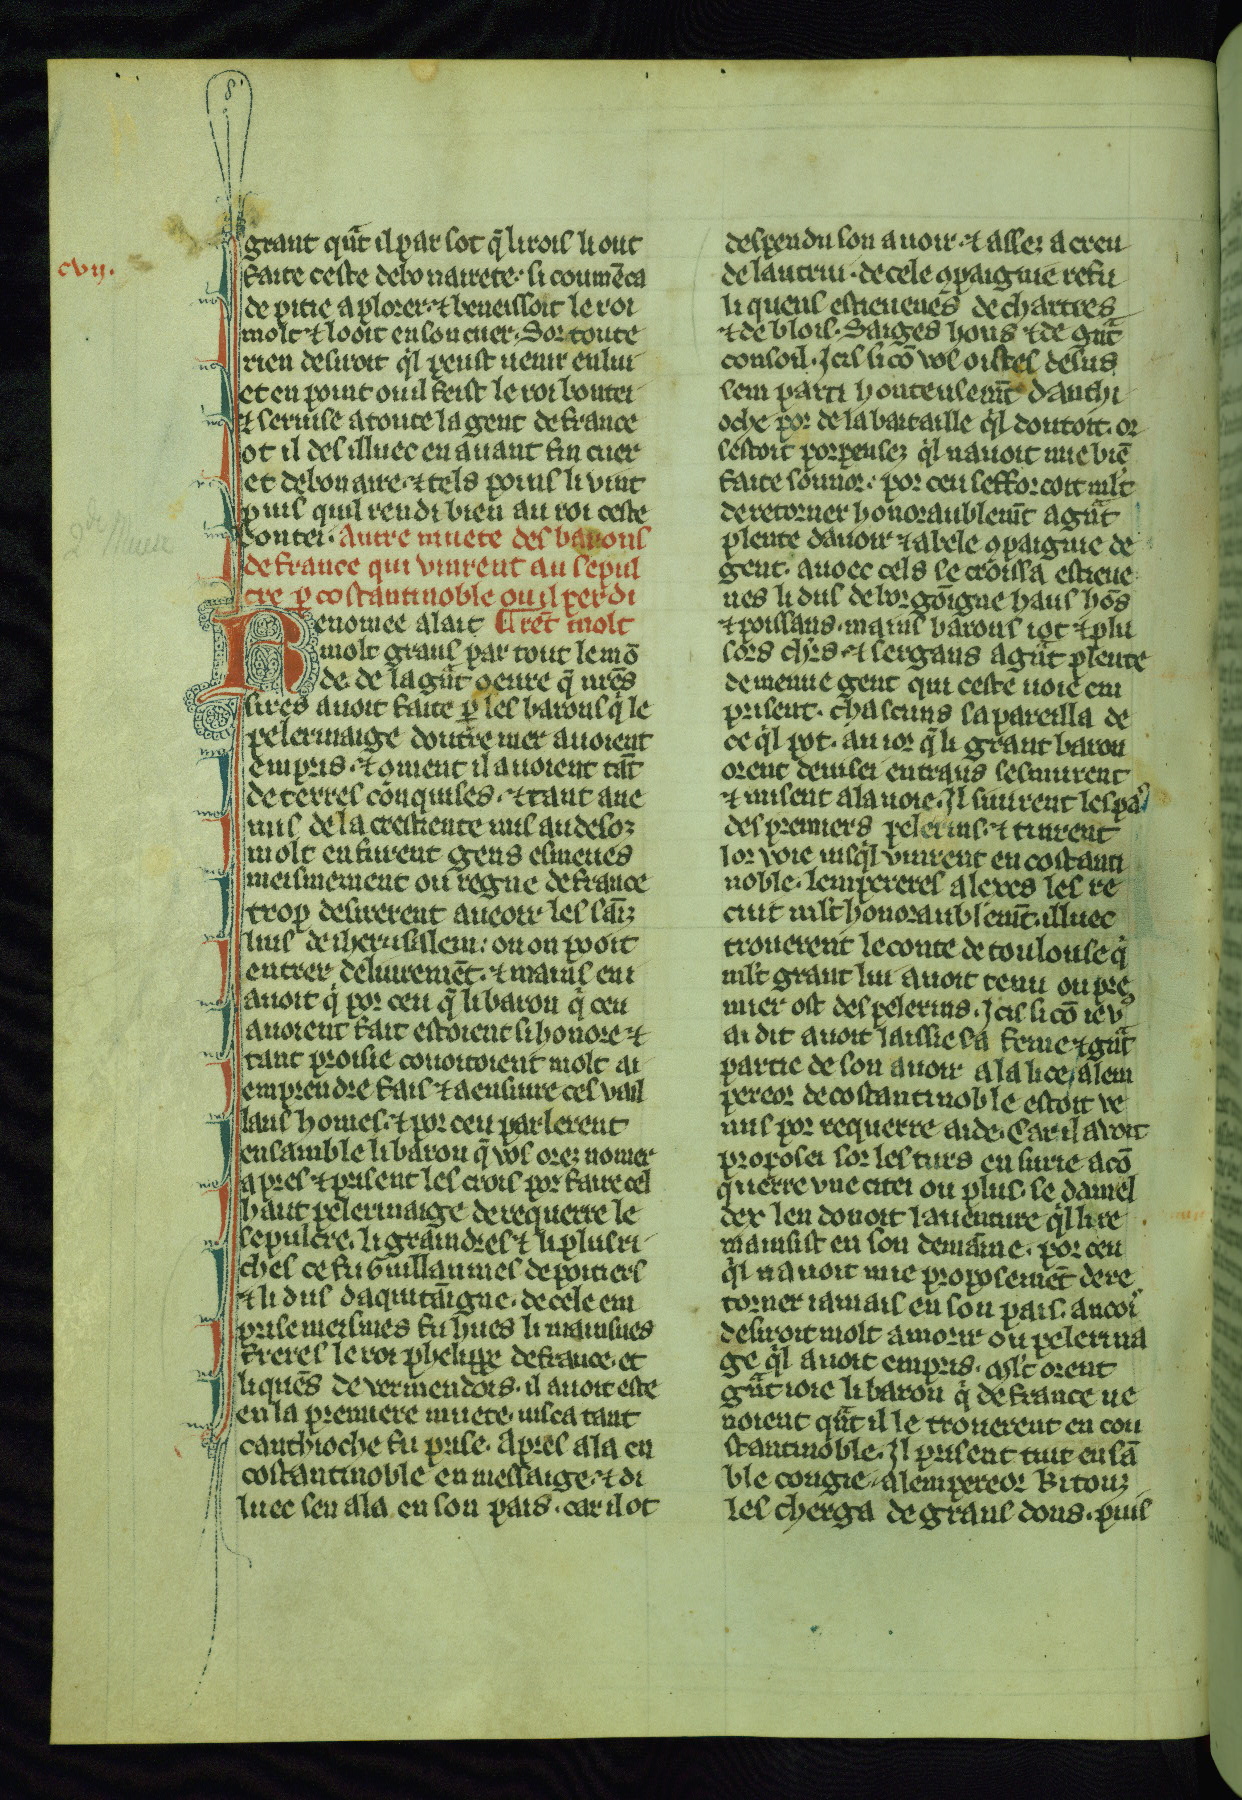 cvij.
grant qñt il par sot q̃ li rois li out
faite ceste debonairete. si coumẽca
de pitie a plorer. ⁊ beneissoit le roi
molt ⁊ looit en son cuer. Sor toute
rien desiroit ql peust uenir en lui
et en point ou il feist le roi bontei
⁊ seruise a toute la gent de france
ot il des illuec en auant fin cuer
et debonaire. ⁊ tels poins li uint
puis quil rendi bien au roi ceste
bontei. Autre muete des barons
de france qui vinrent au sepul
cre p̲ costantinoble ou il perdi
Renomee alait Urẽt molt
molt grans par tout le mõ
de. de la gñt oeure q̃ nr̃es
sires auoit faite p̲ les barons q̃ le
pelerinaige doutre mer auoient
empris. ⁊ ꝯment il auoient tãt
de terres conquises. ⁊ tant aue
nus de la crestiente mis au desoz
molt en furent gens esmeues
meismement ou regne de france
trop desirerent aueoir les sãiz
lius de iherusalem: ou on pooit
entrer deliuremẽt. ⁊ mains en i
auoit q̃ por ceu q̃ li baron q̃ ceu
auoient fait estoient si honore ⁊
tant proisie couoitoient molt ai
emprendre fais ⁊ a ensiure ces vail
lans homes. ⁊ por ceu parlerent
ensamble li baron q̃ vos orez nomer
apres ⁊ prisent les crois por faire cel
haut pelerinaige de requerre le
sepulcre. li graindres ⁊ li plus ri
ches ce fu Guillaumes de poitiers
⁊ li dus daquitaigne. de cele em
prise meismes fu hues li mainsnes
freres le roi phelippe de france. et
li quẽs de vermendois. il auoit este
en la premiere muete. iusca tant
canthioche fu prise. Apres ala en
costantinoble en messaige. ⁊ di
luec sen ala en son pais. car il ot
despendu son auoir. ⁊ assez acreu
de lautrui. de cele ꝯpaignie refu
li quens estieueñes de chartres
⁊ de blois. Saiges hons ⁊ de gñt
consoil. Icil si cõ vos oistes desus
sem parti honteusemt̃ danthi
oche por de la bataille ql doutoit. or
sestoit porpensez ql nauoit mie biẽ
faite sonnor. por ceu sefforcoit ml̃t
de retorner honoraublemt̃ a gñt
plente dauoir ⁊ a bele ꝯpaignie de
gent. auoec cels se croissa estieue
nes li dus de borgoigne haus hõs
⁊ poissans. mains barons i ot ⁊ plu
sors chr̃s. ⁊ sergans a gñt plente
de menue gent qui ceste uoie em
prisent. chascuns sapareilla de
ce ql pot. au ior q̃ li grant baron
orent deuisei entraus sesmurent
⁊ misent a la uoie. Il suirent les pas
des premiers pelerins. ⁊ tinrent
lor voie iusql vinrent en costanti
noble. lempereres alexes les re
ciut ml̃t honoraublemt̃. illuec
trouerent le conte de toulouse q̃
ml̃t grant liu auoit tenu ou pre
mier ost des pelerins. Icil si cõ ie v̾
ai dit auoit laissie sa feme ⁊ gñt
partie de son auoir a la lice. a lem
pereor de costantinoble estoit ve
nus por requerre aide. Car il avoit
proposei sor les turs en surie a cõ
querre vne citei ou plus. se damel
dex len donoit lauenture ql li re
mainsist en son demaine. por ceu
ql nauoit mie proposemẽt de re
torner iamais en son pais. ancoi
desiroit molt a morir ou pelerina
ge ql auoit empris. ml̃t orent
gñt ioie li baron q̃ de france ue
noient qñt il le trouerent en con
stantinoble. Il prisent tuit en sã
ble congie a lempereor Ki touz
les cherga de grans dons. puis